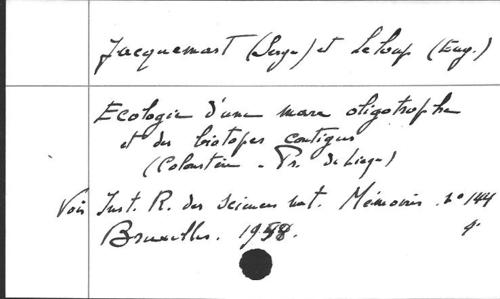 Jacquemart (Serge) et Leloup (Eug.)
Ecologie d'une mare oligotrophe
et des biotopes contigus
(Colonstère - Pr. de Liège)
Voir Inst. R. des Sciences nat. Mémoires. n° 144
Bruxelles. 1958.